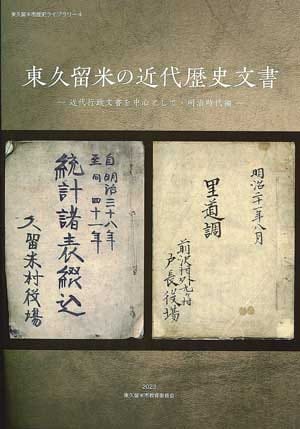 東久留米市歴史ライブラリー4
東久留米の近代歴史文書
―近代行政文書を中心として・明治時代編―
自明治三十八年
至同四十一年
統計諸表綴込
久留米村役場
明治二十一年八月
里道調
前沢村外九ヶ村
戸長役場
2023
東久留米市教育委員会